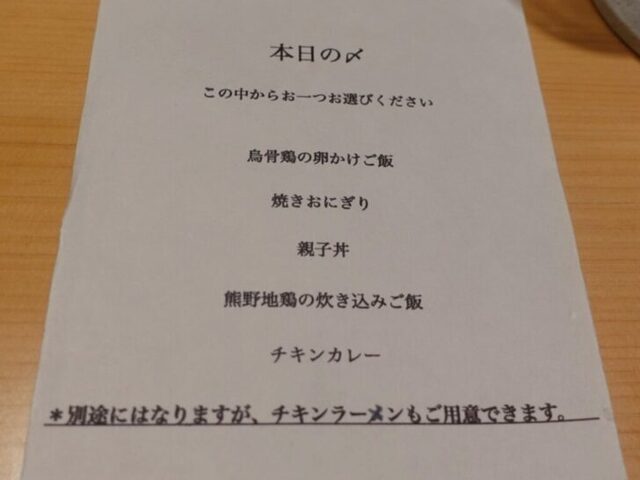 本日の〆
この中からお一つお選びください
烏骨鶏の卵かけご飯
焼きおにぎり
親子丼
熊野地鶏の炊き込みご飯
チキンカレー
＊別途にはなりますが、チキンラーメンもご用意できます。